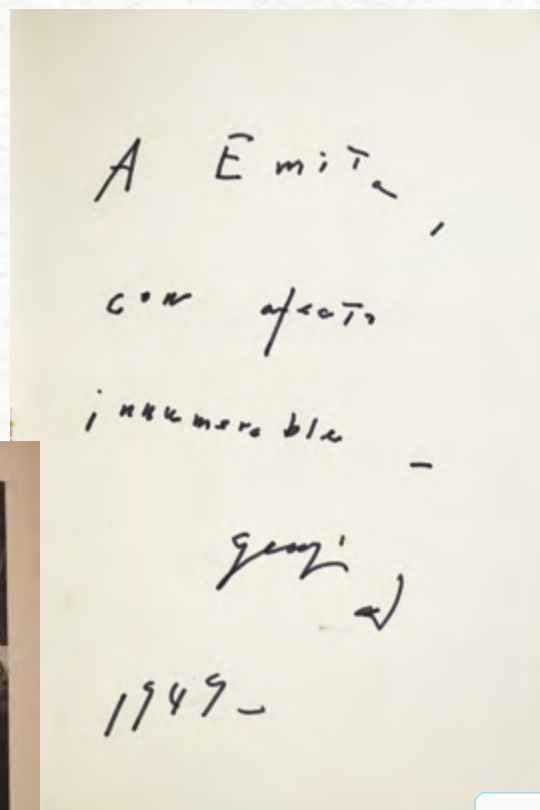 A Emita,
con afecto
innumerable -
1949-